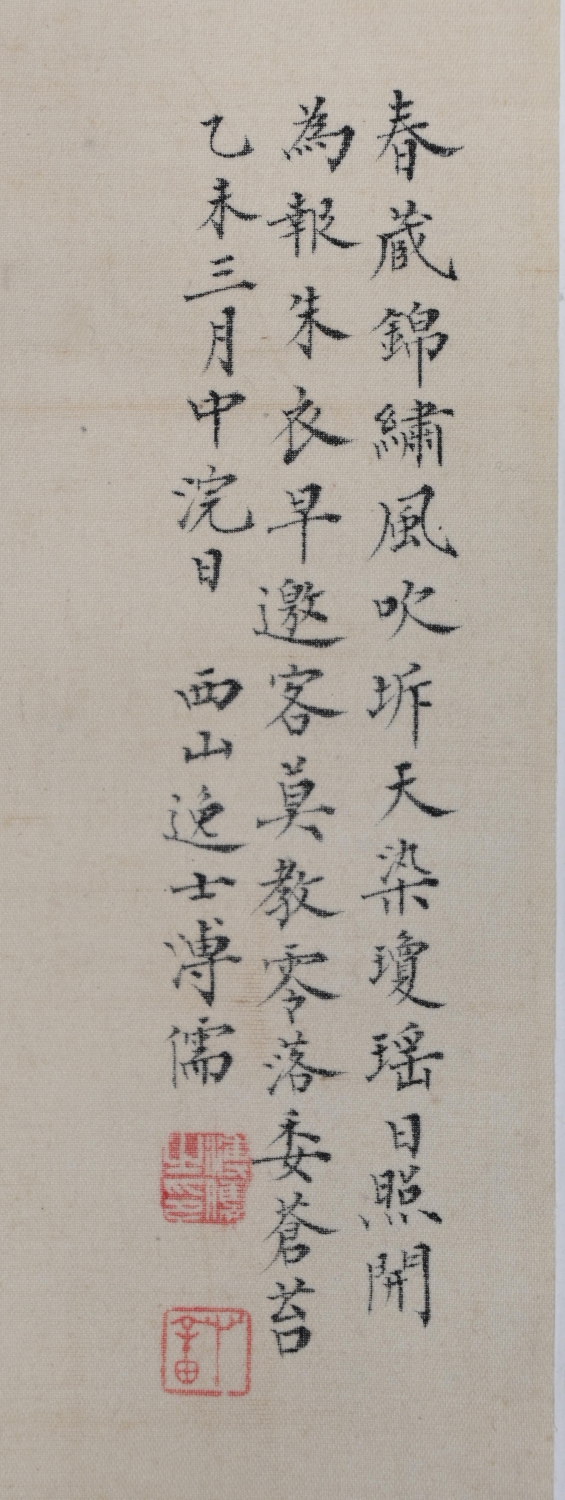 春蔵錦繡風吹坼天染瓊瑶日照開
為報朱衣早邀客莫教零落委蒼苔
乙未三月中浣日 西山逸士溥儒